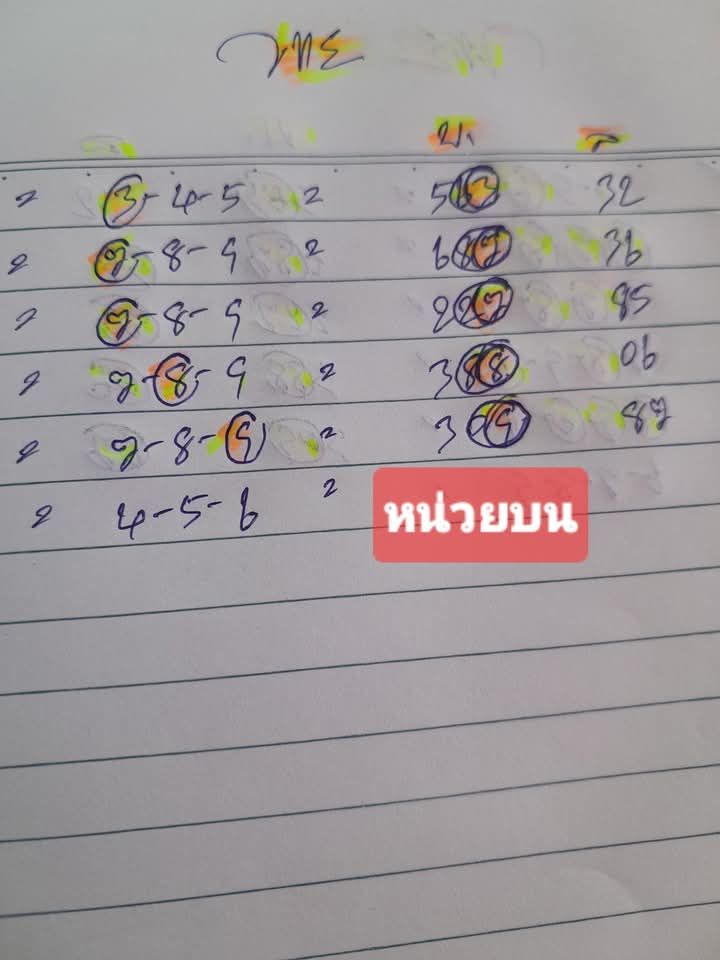 บ. ล
2 3-4-5 2 32
2 7-8-9 2 687 36
2 7-8-9 2 227 85
2 7-8-9 2 388 06
2 7-8-9 2 87
2 4-5-6 2
หน่วยบน